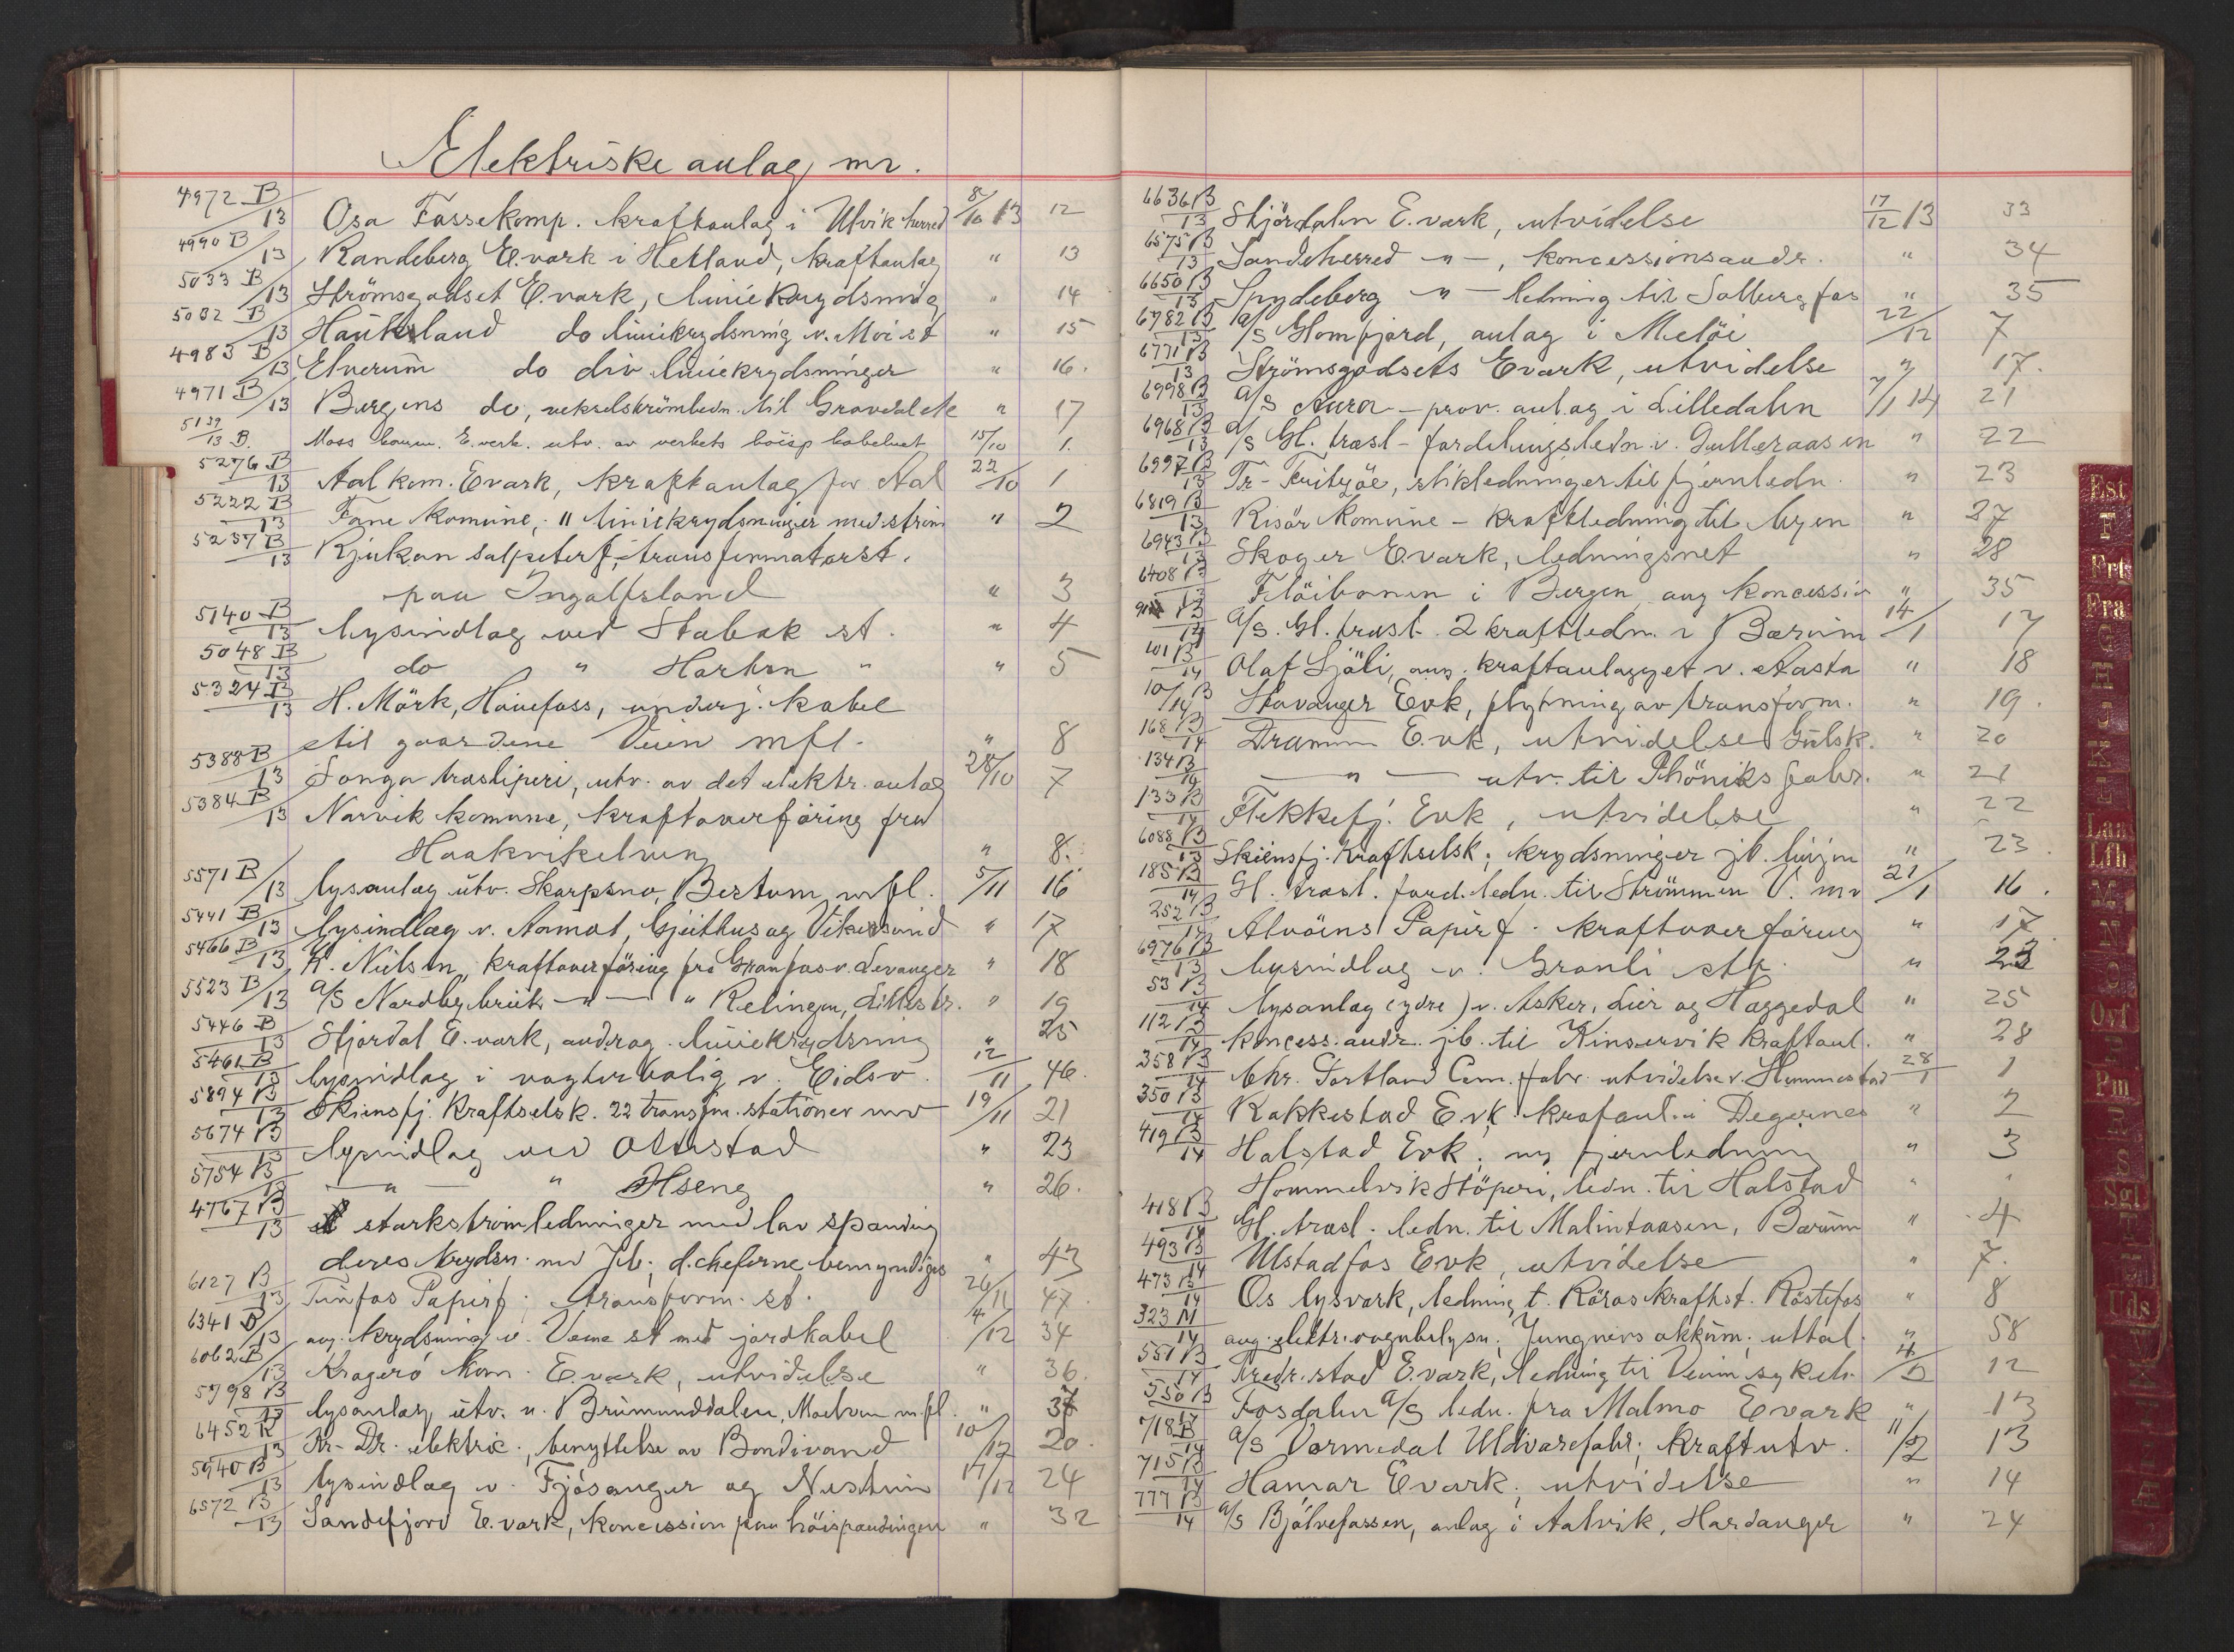 Elektriske anlæg, mv.
4972 B/13 Osa Fossekomp. kraftanlæg i Ulvik herred 8/10 13 12
4990 B/13 Randeberg E.værk i Hetland, kraftanlæg " 13
5033 B/13 Strömsgodset E.værk, liniekrydsning " 14
5032 B/13 Haukeland do liniekrydsning v. Moi st " 15
4983 B/13 Elverum do div liniekrydsninger " 16.
4971 B/13 Bergens do, vekselströmledn. til Gravdal etc " 17
5139/13 B. Moss komm. E.verk. utv. av verkets höisp kabelnet 15/10 1.
5276 B/13 Aal kom. Eværk, kraftanlæg for Aal 22/10 1
5222 B/13 Fane komune, 11 liniekrydsninger med ström " 2
5237 B/13 Rjukan salpeterf, transformatorst.
paa Ingolfsland " 3
5140 B/13 lysindlæg ved Stabæk st. " 4
5048 B/13 do " " " 5
5324 B/13 H. Mörk, Hönefoss, underj. kabel
til gaardene Veien mfl. " 8
5388 B/13 Songa træsliperi, utv. av det elektr. anlæg 28/10 7
5384 B/13 Narvik komune, kraftoverföring fra
Haakvikelven " 8.
5571 B/13 lysanlæg utv. Skarpsno, Bestum mfl. 5/11 16
5441 B/13 lysindlæg v. Aamot, Gjeithus og Vikersund " 17
5466 B/13 K. Nielsen, kraftoverföring fra Granfos v. Levanger " 18
5523 B/13 A/S Nordby bruk —"— " Relingen, Lillestr. " 19
5446 B/13 Stjördal E.værk, andrag. liniekrydsning " 25
5461 B/13 lysindlæg i vogterbolig v. Eidsv. 12/11 46.
5894 B/13 Skiensfj. Kraftselsk. 22 transfm. stationer mv 19/11 21
5674 B/13 lysindlæg ved Ottestad " 23
5754 B/13 —"— " Hseng " 26.
4767 B/13 starkströmledninger med lav spænding
deres krydsn. med Jb; d.cheferne bemyndiges " 43
6127 B/13 Tinfos Papirf; transform. st. 26/11 47.
6341 B/13 ang. krydsning v. Vema st med jordkabel 4/12 34
6062 B/13 Kragerö kom. E.værk, utvidelse " 36.
5798 B/13 lysanlæg utv. v. Brumunddalen, Moelven m.fl. " 37
6452 R/13 Kr- Dr. elektric., benyttelse av Bondivand 10/12 20.
5940 B/13 lysindlæg v. Fjösanger og Nestun 17/12 24
6572 B/13 Sandefjord E.værk, koncession paa höispændingen " 32
6636 B/13 Stjördalen E.værk, utvidelse 17/12 13 33
6575 B/13 Sandeherred —"—, koncessionsandr. " 34
6650 B/13 Spydeberg —"— ledning til Solbergfos " 35
6782 B/13 A/S Glomfjord, anlæg i Melöi 22/12 7
6771 B/13 Strömsgodsets Eværk, utvidelse " 17.
6998 B/13 A/S Aura - prov. anlæg i Lilledalen 7/1 14 21
6968 B/13 A/S Gl. træsl - fordelingsledn. v. Gulleraasen " 22
6997 B/13 Tr- Fritzöe, stikledninger til fjernledn. " 23
6819 B/13 Risör komune - kraftledning til byen " 27
6943 B/13 Skoger E.værk, ledningsnet " 28
6408 B/13 Flöibanen i Bergen ang koncession " 35
B/14 A/S. Gl. træsl. 2 kraftledn. i Bærum 14/1 17
101 B/14 Olaf Sjöli, ang. kraftanlægget v. Aasta " 18
10/14 B Stavanger Evk, flytning av transform. " 19.
168 B/14 Drammen E.vk, utvidelse Gulsk. " 20
134 B/14 —"— utv. til Phöniks fabr. " 21
133 B/14 Flekkefj. Evk, utvidelse " 22
6088 B/13 Skiensfj. Kraftselsk; krydsninger jb. linjen " 23.
185 B/14 Gl. træsl. ford. ledn. til Strömmen V. mv 21/1 16.
252 B/14 Alvöens Papirf. kraftoverföring " 17.
6976 B/13 lysindlæg v. Granli stp. " 23
53 B/14 lysanlæg (ydre) v. Asker, Lier og Haggedal " 25
112 B/14 koncess. andr. jb. til Kinservik kraftanl. " 28
358 B/14 Chr. Portland Cem. fabr. utvidelse v. Slemmestad 28/1 1
350 B/14 Rakkestad Evk. krafanl. i Degernes " 2
419 B/14 Halstad Evk; ny fjernledning " 3
Hommelvik Stöperi, ledn. til Halstad " "
418 B/14 Gl. træsl. ledn. til Malintaasen, Bærum " 4
493 B/14 Ulstadfos Evk, utvidelse " 7.
473 B/14 Os lysværk, ledning t. Röros kraftst. Röstefos " 8
323 M/14 ang. elektr. vognbelysn; Jungners akkum; uttal. " 58
551 B/14 Fredr.stad E.værk, ledning til Veum sykeh. 4/2 12
550 B/14 Fosdalen A/S ledn. fra Malmo Eværk " 13
718 B/14 A/S Vormedal Uldvarefabr; kraftutv. 11/2 13
715 B/14 Hamar Eværk; utvidelse " 14
777 B/14 A/S Bjölvefossen, anlæg i Aalvik, Hardanger " 24
Est
F
Frts
Fra
G
H
J
K
L
Lan
Lfh
M
N
O
Ovf
P
Pm
R
S
Sgl
T
U
Uds
V